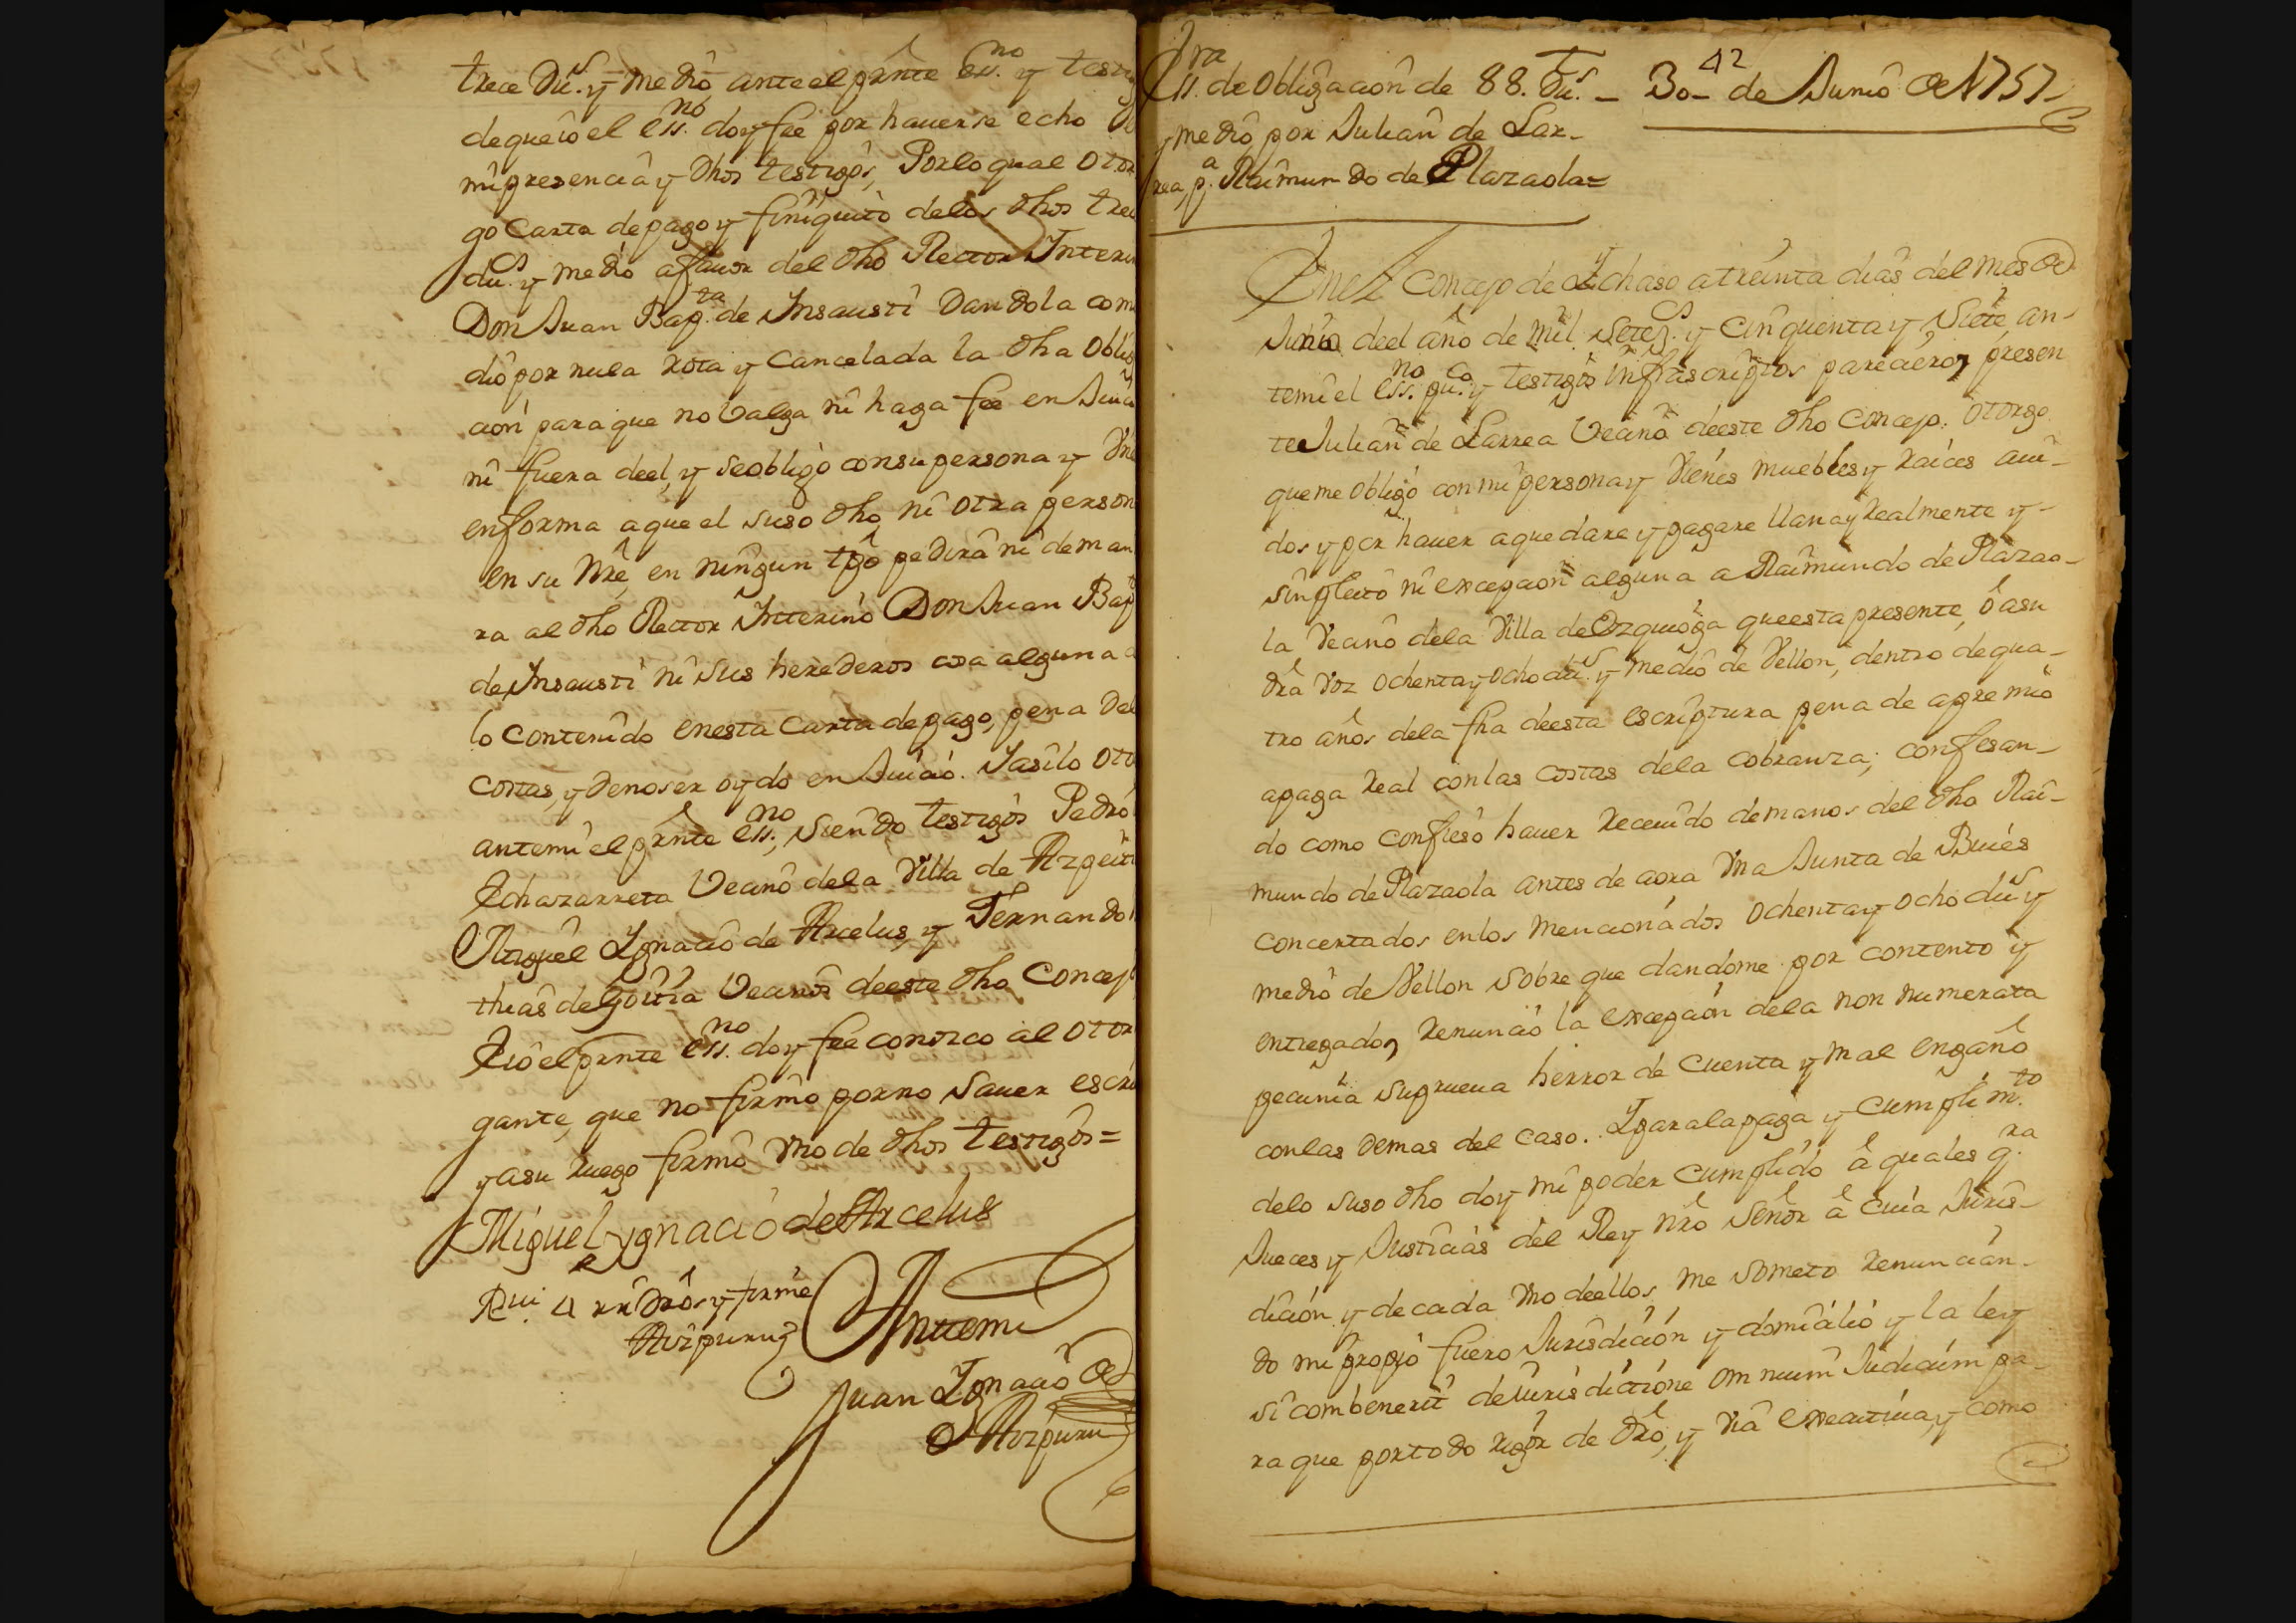 trece Du.s y medio ante el prnte Ess.no y testi
de que io el Ess.no doy fee por hauerse echo
mi presencia y dhos testigos, Por lo qual otor
go Carta de pago y finiquito de los dhos trece
du.s y medio a fauor del dho Rector Interi
Don Juan Bap.ta de Insausti Dandola com
dio por nula rota y Cancelada la dha oblig
acion para que no Valga ni haga fee en Juici
ni fuera deel, y se obligo con su persona y
en forma a que el suso dho, ni otra person
en su Nre, en ningun tpo pedira ni deman
ra al dho Rector Interino Don Juan Bap
de Insausti ni sus herederos cosa alguna
lo Contenido en esta Carta de pago, pena de
costas, y de no ser oydo en Juicio. Y asi lo oto
ante mi el prnte ess.no, siendo testigos Pedro
Echazarreta Vecino de la Villa de Azpeiti
Miguel Ygnacio de Arcelus, y Fernando
thias de Goitia Vecinos de este dho Concej
E io el prnte ess.no doy fee conozco al otor
gante, que no firmo por no Sauer escri
y a su ruego firmo Vno de dhos testigos=
Miguel ygnacio de Arcelus
Rui 4 rr dros y firme
Aizpuru
Ante mi
Juan Ygnacio de
Aizpuru
42
Ess.ra de obligacion de 88. Du.s – 30– de Junio de 1757
y medio por Julian de Lar-
rea, p.a Raimundo de Plazaola=
En el Concejo de Ychaso a treinta dias del mes de
Junio deel año de mil. Setez.s y Cinquenta y Siete, an-
te mi el ess.no pu.co y testigos infrascriptos parecieron presen
te Julian de Larrea Vecino de este dho Concejo. Otorgo
que me obligo con mi persona y Vienes muebles y raices aui-
dos y por hauer a que dare y pagare llana y realmente y-
sin pleito ni excepcion alguna a Raimundo de Plazao-
la Vecino de la Villa de Ezquioga que esta presente, ô a su
dra Voz ochenta y ocho du.s y medio de Vellon, dentro de qua-
tro años de la fha de esta escriptura pena de apremio
a paga real con las costas de la cobranza; confesan-
do como confieso hauer receuido de manos del dho Rai-
mundo de Plazaola antes de aora Vna Junta de Bueies
concertados en los mencionados ochenta y ocho du.s y
medio de Vellon sobre que dandome por contento y
entregado, renuncio la excepcion de la non numerata
pecunia su prueua herror de cuenta y mal engaño
con las demas del caso. Y para la paga y cumplim.to
de lo suso dho doy mi poder cumplido â quales q.ra
Jueces y Justicias del Rey nro Señor â cuia Juris-
dicion y de cada Vno de ellos, me someto renuncian-
do mi propio fuero Jurisdicion y domicilio y la ley
si combenerit de iurisdictione omnium Judicum pa-
ra que por todo rigor de dro, y Via executiua, y como